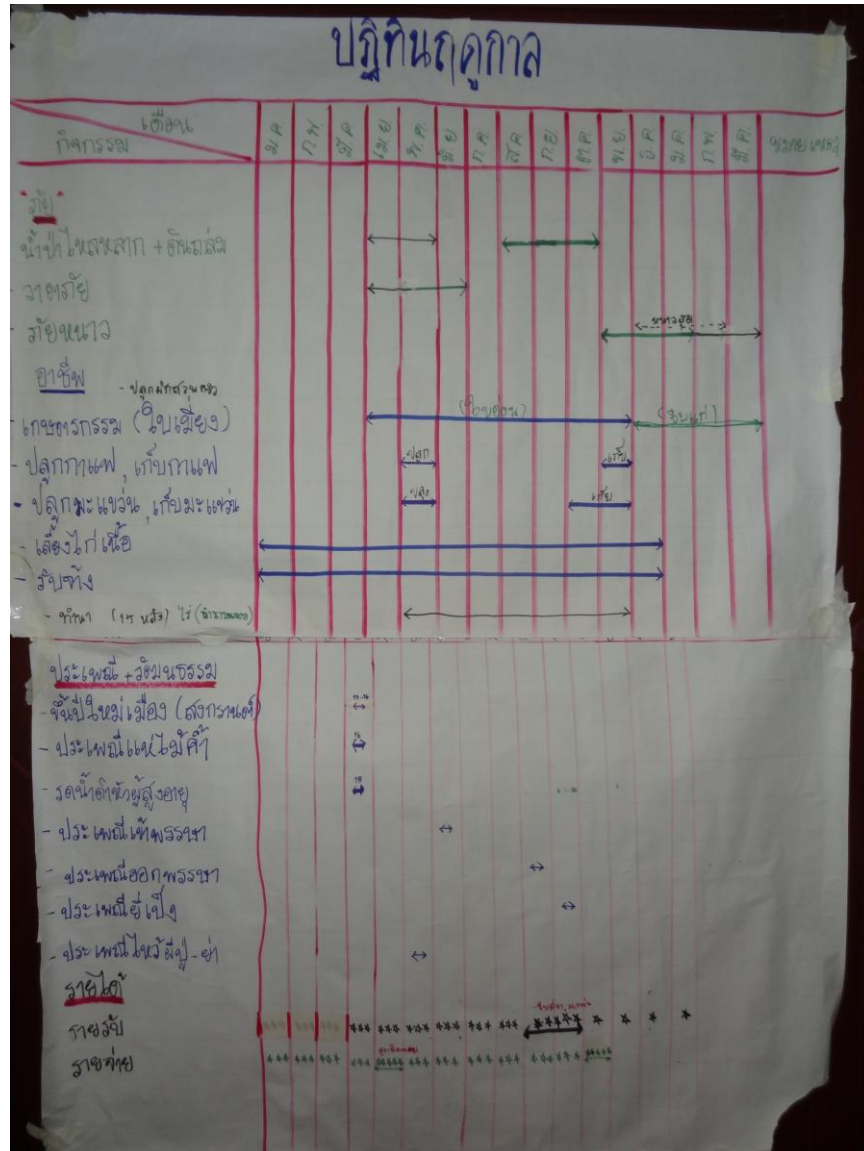 ปฏิทินฤดูกาล
เดือน
กิจกรรม
ม.ค. ก.พ. มี.ค. เม.ย. พ.ค. มิ.ย. ก.ค. ส.ค. ก.ย. ต.ค. พ.ย. ธ.ค. ม.ค. ก.พ. มี.ค. หมายเหตุ
"ภัย"
น้ำป่าไหลหลาก + ดินถล่ม
- วาตภัย
- ภัยหนาว
หนาวสุด
อาชีพ
- ปลูกผักสวนครัว
- เกษตรกรรม (ใบเมี่ยง) (ใบอ่อน) (ใบแก่)
- ปลูกกาแฟ, เก็บกาแฟ ปลูก เก็บ
- ปลูกมะแขว่น, เก็บมะแขว่น ปลูก เก็บ
- เลี้ยงไก่เนื้อ
- รับจ้าง
- ทำนา (15 หลัง) ไร่
ประเพณี + วัฒนธรรม
- ขึ้นปีใหม่เมือง (สงกรานต์)
- ประเพณีแห่ไม้ค้ำ
- รดน้ำดำหัวผู้สูงอายุ
- ประเพณีเข้าพรรษา
- ประเพณีออกพรรษา
- ประเพณียี่เป็ง
- ประเพณีไหว้ผีปู่-ย่า
รายได้
รายรับ
รายจ่าย